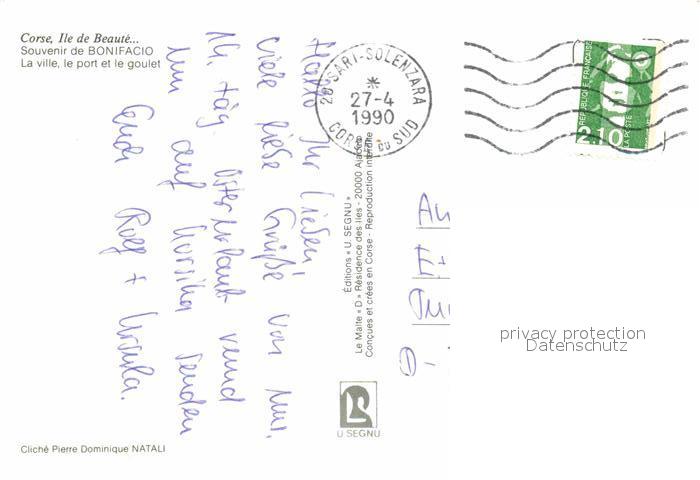 Corse, Ile de Beauté...
Souvenir de BONIFACIO
La ville, le port et le goulet
Hallo Ihr Lieben!
viele liebe Grüße von uns.
14. täg. Osterurlaub
auf Korsika senden
Euch Rolf + Ursula.
20 SARI-SOLENZARA
*
27-4
1990
CORSE DU SUD
REPUBLIQUE FRANÇAISE
2,10
LA POSTE
Éditions « U. SEGNU »
Le Malte « D » Résidence des Iles - 20000 Ajaccio
Conçues et créées en Corse - Reproduction interdite
D-
privacy protection
Datenschutz
U SEGNU
Cliché Pierre Dominique NATALI